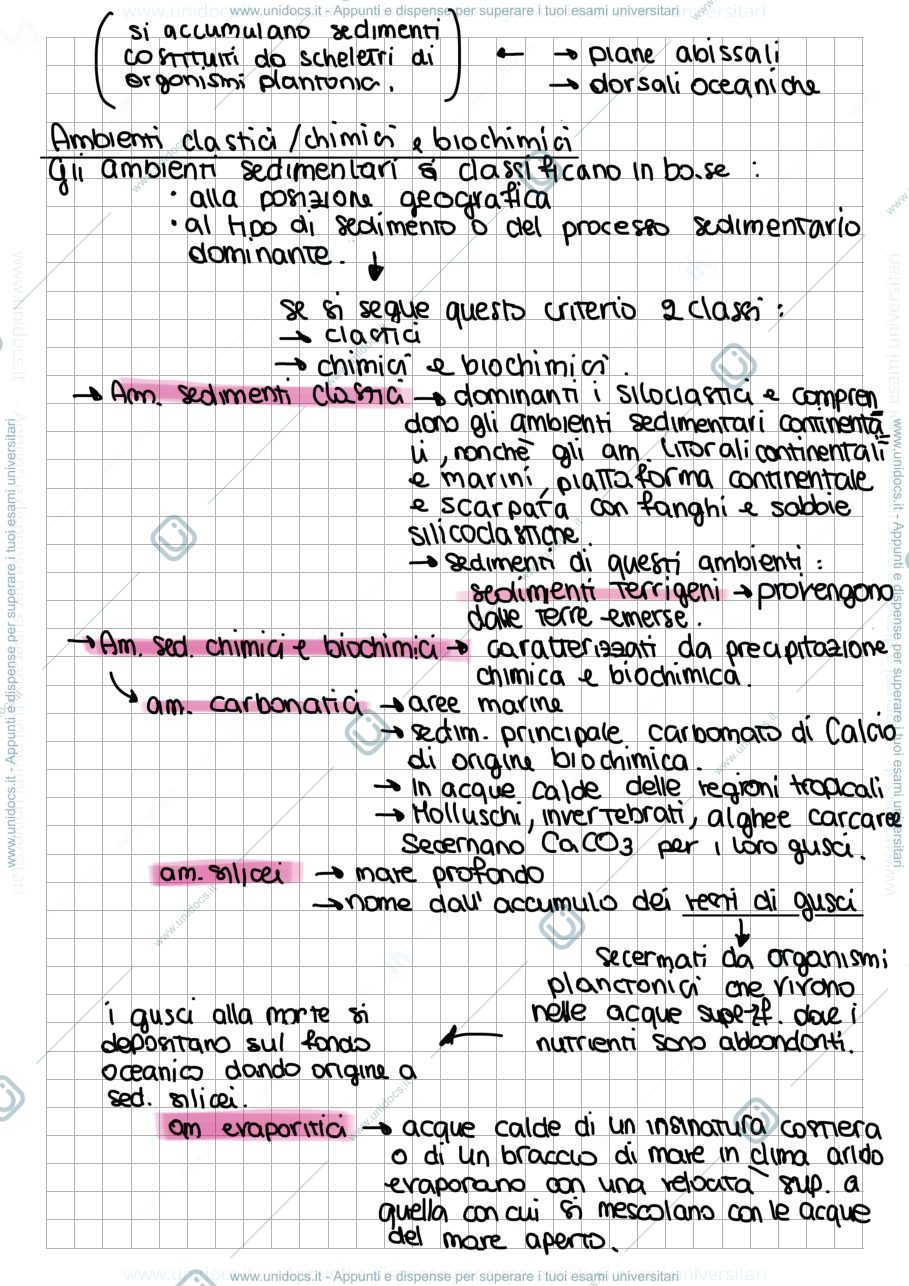 www.unidocs.it - Appunti e dispense per superare i tuoi esami universitari
si accumulano sedimenti
costituiti da scheletri di
organismi planctonici.
← → piane abissali
→ dorsali oceaniche
Ambienti clastici / chimici e biochimici
Gli ambienti sedimentari si classificano in base :
· alla posizione geografica
· al tipo di sedimento o del processo sedimentario
dominante. ↓
se si segue questo criterio 2 classi :
→ clastici
→ chimici e biochimici .
→ Am. sedimenti clastici → dominanti i siloclastici e compren
dono gli ambienti sedimentari continenta
li , nonchè gli am. litorali continentali
e marini, piattaforma continentale
e scarpata con fanghi e sabbie
silicoclastiche.
→ sedimenti di questi ambienti :
sedimenti terrigeni → provengono
dalle terre emerse.
→ Am. sed. chimici e biochimici → caratterizzati da precipitazione
chimica e biochimica.
am. carbonatici → aree marine
→ sedim. principale carbomato di Calcio
di origine biochimica.
→ In acque calde delle regioni tropicali
→ Molluschi, invertebrati, alghee carcaree
Secernano CaCO3 per i loro gusci.
am. silicei → mare profondo
→ nome dall' accumulo dei resti di gusci
↓
secermati da organismi
planctonici che vivono
nelle acque superf. dove i
nutrienti sono abbondanti.
←
i gusci alla morte si
depositano sul fondo
oceanico dando origine a
sed. silicei.
am evaporitici → acque calde di un insinatura costiera
o di un braccio di mare in clima arido
evaporano con una velocità sup. a
quella con cui si mescolano con le acque
del mare aperto.
www.unidocs.it - Appunti e dispense per superare i tuoi esami universitari